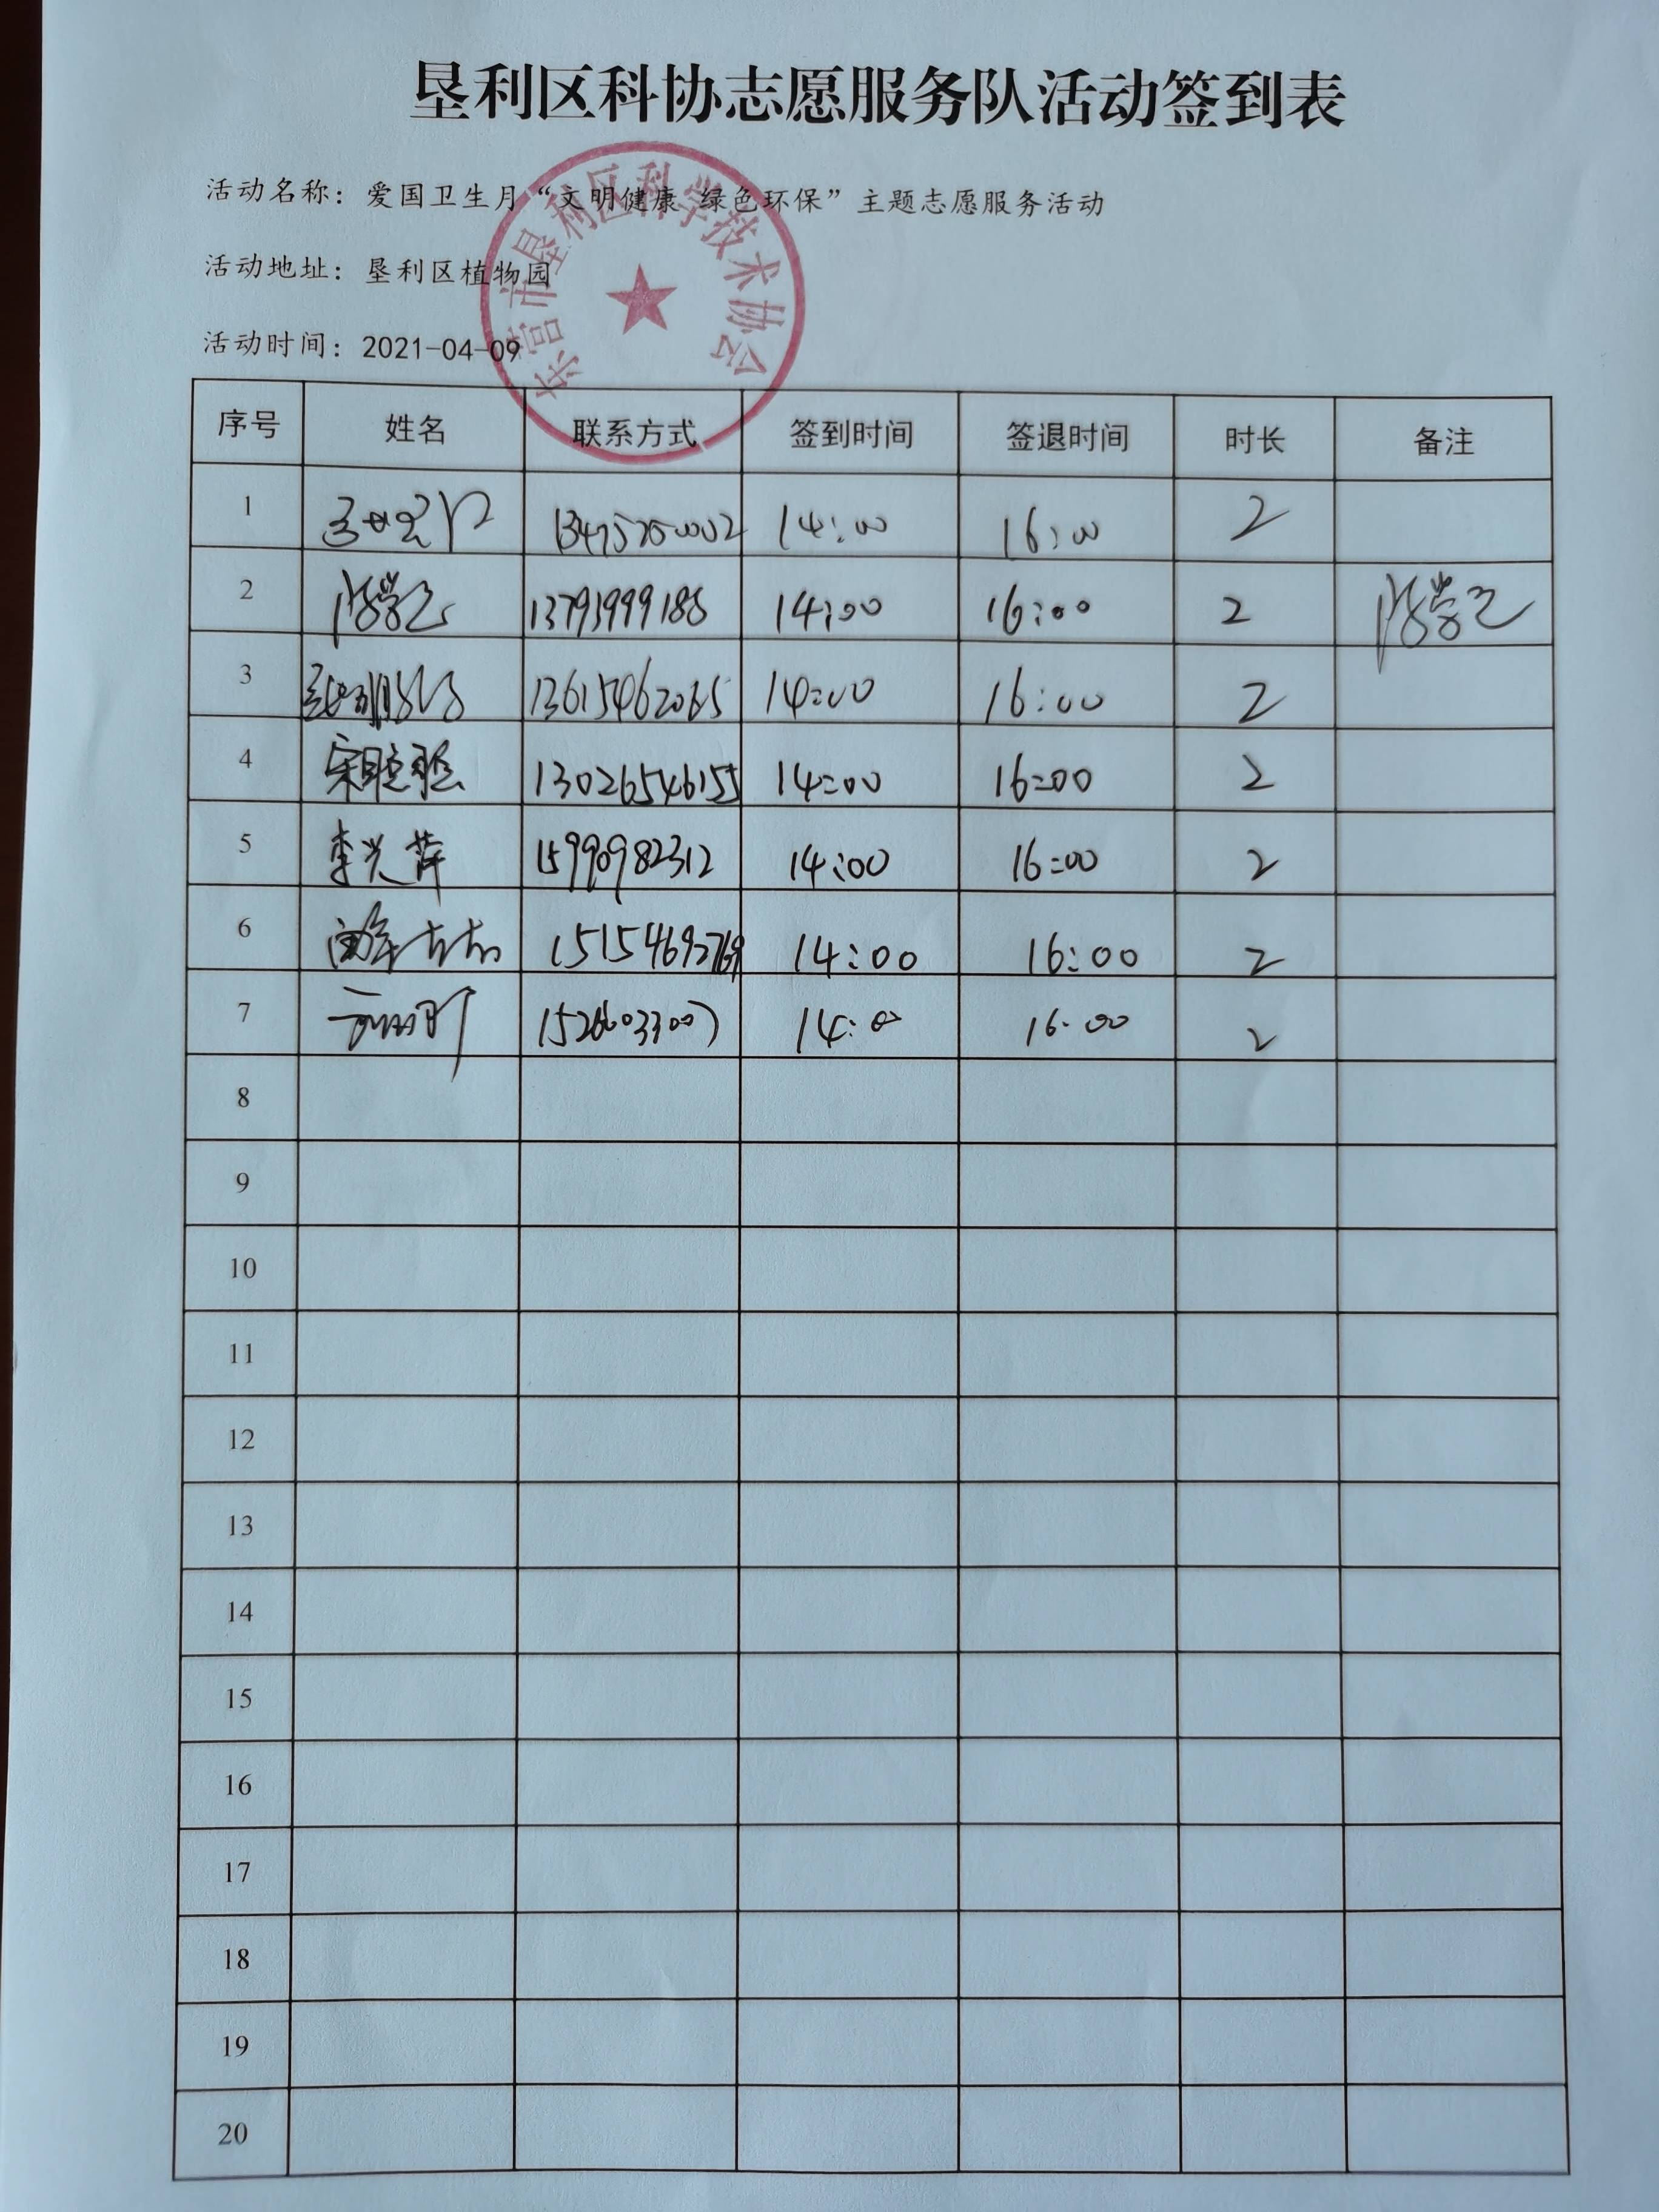 垦利区科协志愿服务队活动签到表
活动名称：爱国卫生月“文明健康 绿色环保”主题志愿服务活动
活动地址：垦利区植物园
活动时间：2021-04-09
东营市垦利区科学技术协会
序号 姓名 联系方式 签到时间 签退时间 时长 备注
1 14:00 16:00 2
2 13793999188 14:00 16:00 2
3 13615462065 14:00 16:00 2
4 13026546155 14:00 16:00 2
5 李兴萍 15990982312 14:00 16:00 2
6 15154692769 14:00 16:00 2
7 14:00 16:00 2
8
9
10
11
12
13
14
15
16
17
18
19
20